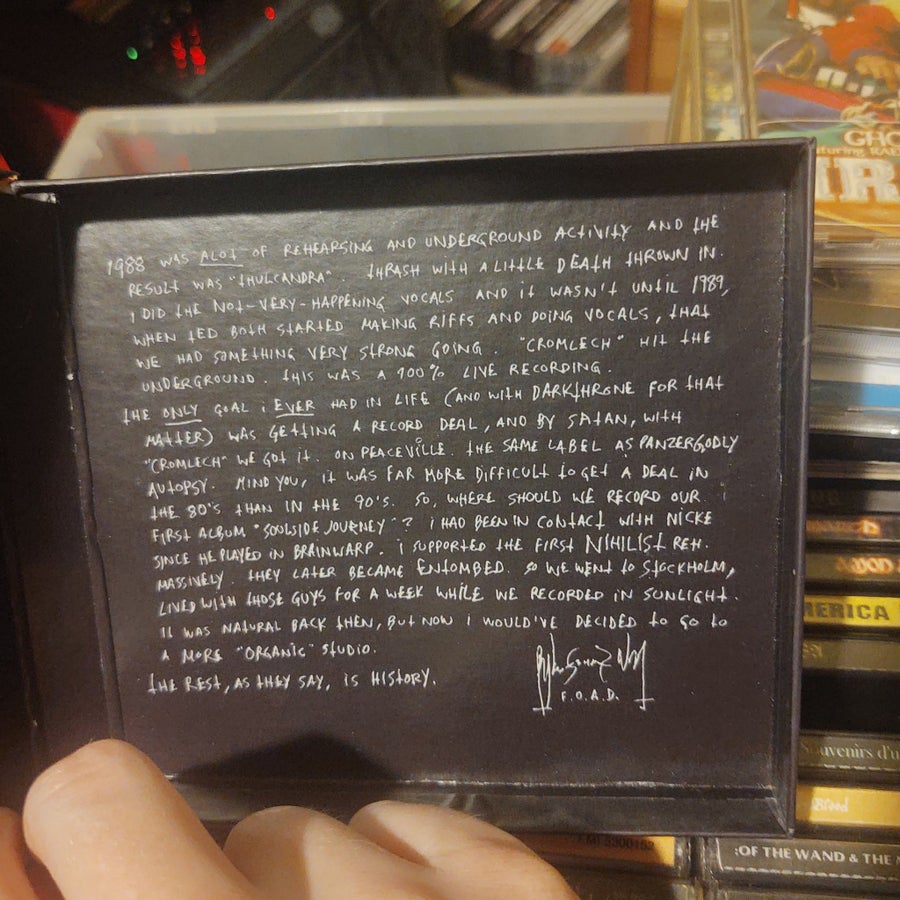 1988 WAS ALOT OF REHEARSING AND UNDERGROUND ACTIVITY AND THE
RESULT WAS "THULCANDRA". THRASH WITH A LITTLE DEATH THROWN IN.
I DID THE NOT-VERY-HAPPENING VOCALS AND IT WASN'T UNTIL 1989,
WHEN TED BOTH STARTED MAKING RIFFS AND DOING VOCALS, THAT
WE HAD SOMETHING VERY STRONG GOING. "CROMLECH" HIT THE
UNDERGROUND. THIS WAS A 100% LIVE RECORDING.
THE ONLY GOAL I EVER HAD IN LIFE (AND WITH DARKTHRONE FOR THAT
MATTER) WAS GETTING A RECORD DEAL, AND BY SATAN, WITH
"CROMLECH" WE GOT IT. ON PEACEVILLE. THE SAME LABEL AS PANZERGODLY
AUTOPSY. MIND YOU, IT WAS FAR MORE DIFFICULT TO GET A DEAL IN
THE 80'S THAN IN THE 90'S. SO, WHERE SHOULD WE RECORD OUR
FIRST ALBUM "SOULSIDE JOURNEY"? I HAD BEEN IN CONTACT WITH NICKE
SINCE HE PLAYED IN BRAINWARP. I SUPPORTED THE FIRST NIHILIST REH.
MASSIVELY. THEY LATER BECAME ENTOMBED. SO WE WENT TO STOCKHOLM,
LIVED WITH THOSE GUYS FOR A WEEK WHILE WE RECORDED IN SUNLIGHT.
IT WAS NATURAL BACK THEN, BUT NOW I WOULD'VE DECIDED TO GO TO
A MORE "ORGANIC" STUDIO.
THE REST, AS THEY SAY, IS HISTORY.
F.O.A.D.
GHO
aturing RAE
IR
ERICA
Souvenirs d'u
Blood
:OF THE WAND & THE